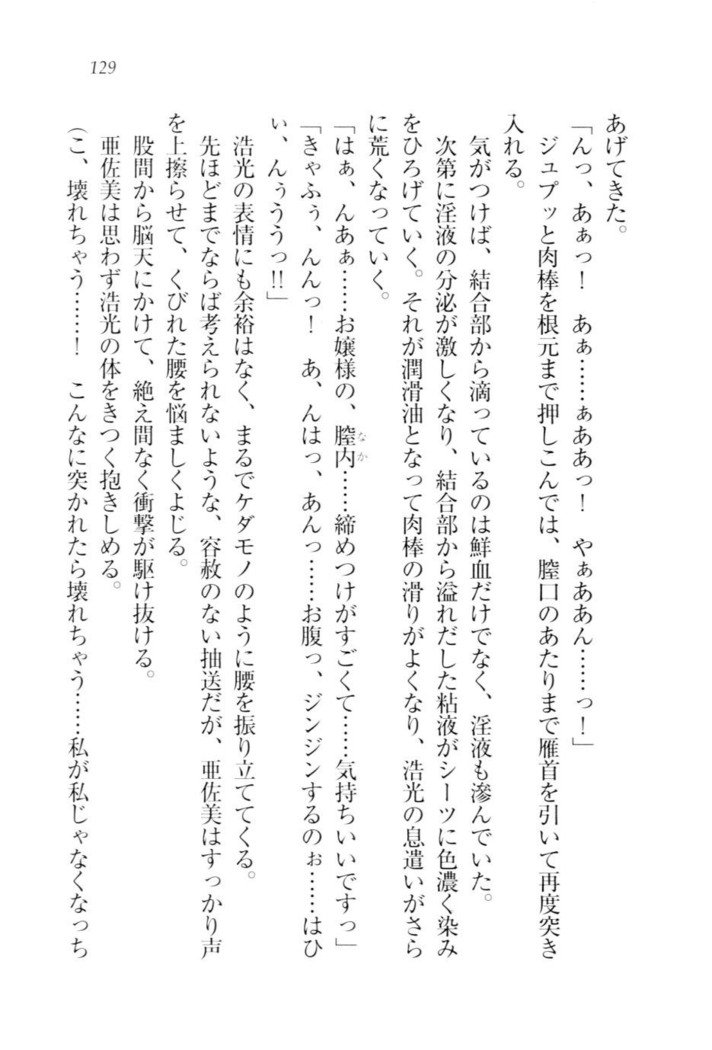 129
あげてきた。
「んっ、あぁっ！　あぁ……ぁああっ！　やぁああん……っ！」
ジュプッと肉棒を根元まで押しこんでは、膣口のあたりまで雁首を引いて再度突き
入れる。
気がつけば、結合部から滴っているのは鮮血だけでなく、淫液も滲んでいた。
次第に淫液の分泌が激しくなり、結合部から溢れだした粘液がシーツに色濃く染み
をひろげていく。それが潤滑油となって肉棒の滑りがよくなり、浩光の息遣いがさら
に荒くなっていく。
「はぁ、んあぁ……お嬢様の、膣内なか……締めつけがすごくて……気持ちいいですっ」
「きゃふぅ、んんっ！　あ、んはっ、あんっ……お腹っ、ジンジンするのぉ……はひ
ぃ、んぅううっ!!」
浩光の表情にも余裕はなく、まるでケダモノのように腰を振り立ててくる。
先ほどまでならば考えられないような、容赦のない抽送だが、亜佐美はすっかり声
を上擦らせて、くびれた腰を悩ましくよじる。
股間から脳天にかけて、絶え間なく衝撃が駆け抜ける。
亜佐美は思わず浩光の体をきつく抱きしめる。
（こ、壊れちゃう……！　こんなに突かれたら壊れちゃう……私が私じゃなくなっち